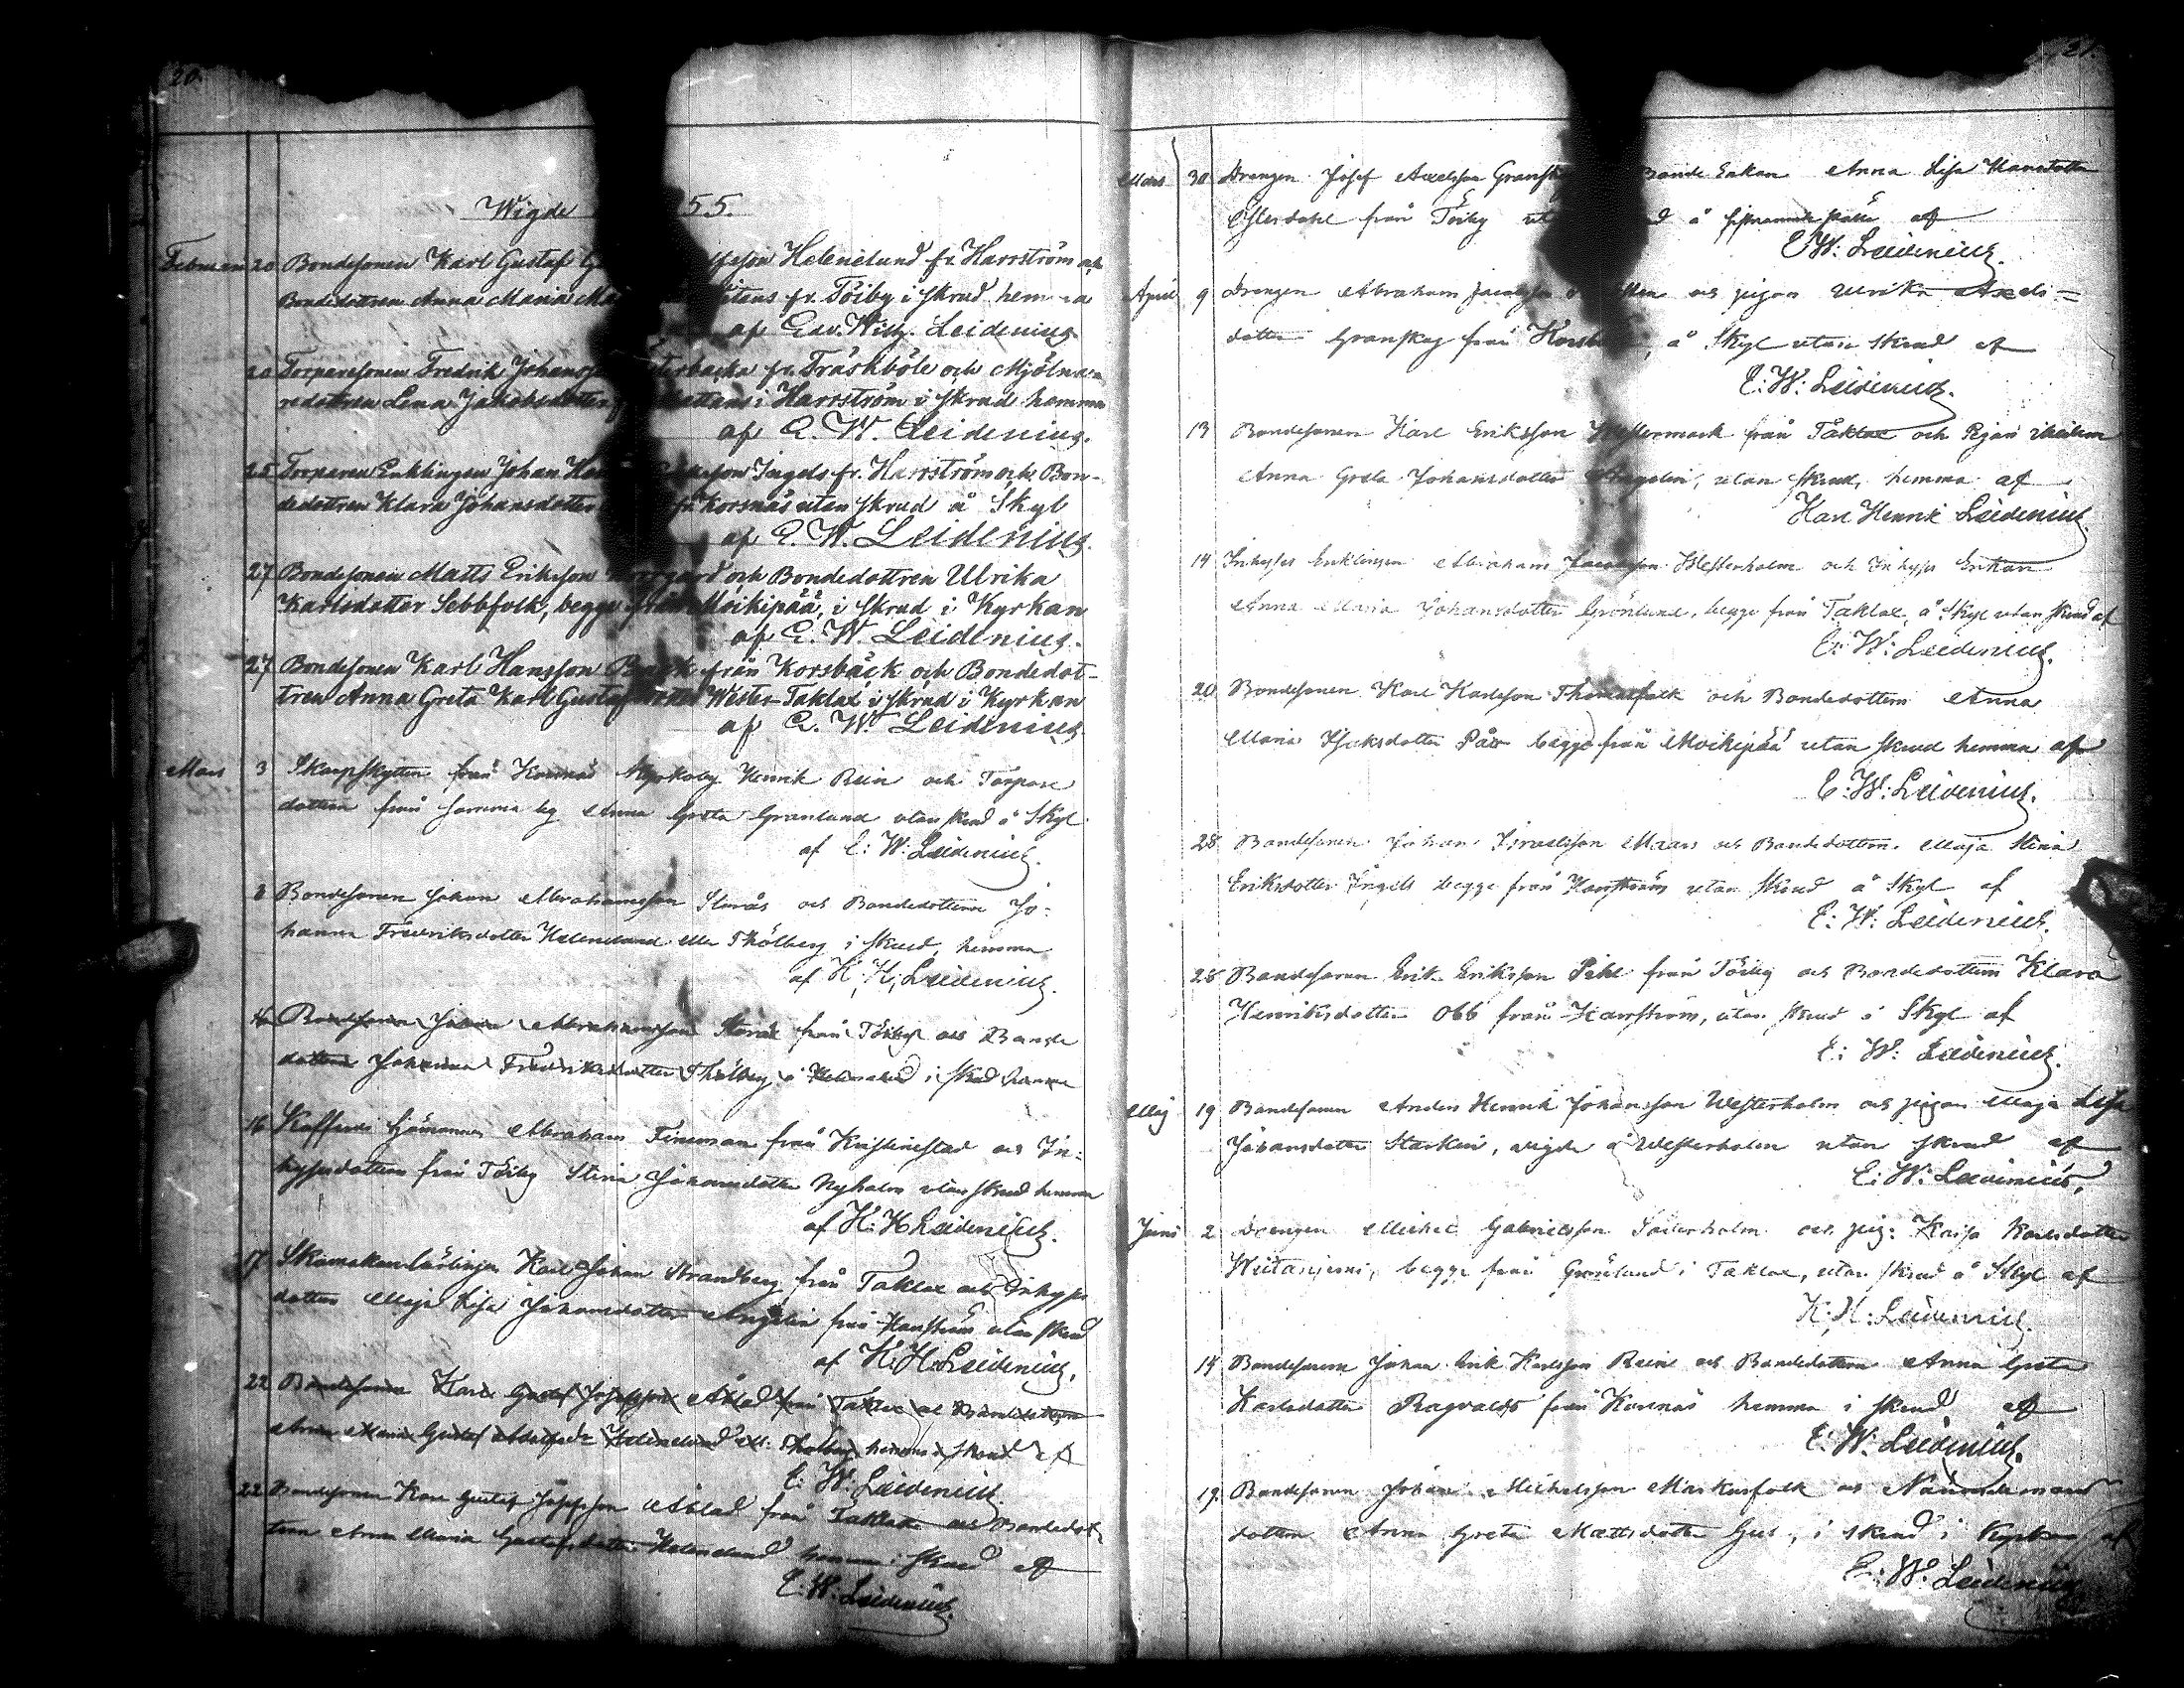 20.
Wigde 55.
Februari 20 Bondesonen Karl Gustaf Helenelund fr. Harrström och
Bondedottren Anna Maria fr. Töiby i skrud hemma
af Edv. Wilh. Leidenius.
20 Torparesonen Fredrik Johansson fr. Träskböle och Mjölna-
redottren Lena Jakobsdotter i Harrström i skrud hemma
af E. W. Leidenius.
25 Torparen Enklingen Johan Ingels fr. Harrström och Bon-
dedottren Klara Johansdotter fr. Korsnäs utan skrud å Skyl
af E. W. Leidenius.
27 Bondesonen Matts Eriksson och Bondedottren Ulrika
Karlsdotter Sebbfolk, begge från Moikipää, i skrud i Kyrkan
af E. W. Leidenius.
27 Bondesonen Karl Hansson Back från Korsbäck och Bondedot-
tren Anna Greta Karl Gustafsdotter Wester-Taklax i skrud i Kyrkan
af E. W. Leidenius.
Mars 3 Skarpskytten från Korsnäs Kyrkoby Henrik Rein och Torpare
dottren från samma by Anna Greta Granlund utan skrud å Skyl
af E: W: Leidenius.
Bondesonen Johan Abrahamsson Storås och Bondedottren Jo-
hanna Fredriksdotter Helenelund eller Thölberg i skrud, hemma
af K: H: Leidenius.
Bondesonen Johan Abrahamsson Storås från Töiby och Bonde
dottren Johanna Fredriksdotter Thölberg å Helenelund i skrud hemma
16 Abraham Finnman från Kristinestad och In-
hysesdottren från Töiby Stina Johansdotter Nyholm utan skrud hemma
af K: H Leidenius.
17 Skomakarelärlingen Karl Johan Strandberg från Taklax och Inhyses
dottren Maja Lisa Johansdotter Angelin från Harrström utan skrud
af K: H: Leidenius.
22 Bondesonen Karl Gustaf Josefsson Åblad från Taklax och Bondedottren
Anna Maria Gustaf Helenelund ell: Tholberg hemma i skrud af
E: W: Leidenius.
22 Bondesonen Karl Gustaf Josefsson Åblad från Taklax och Bondedot-
tren Anna Maria Gustafsdotter Helenelund hemma i skrud af
E: W: Leidenius.
21.
Mars 30 Drengen Josef Axelsson Bonde Enkan Anna Lisa Hansdotter
Österdahl från Töiby å af
E: W: Leidenius.
April 9 Drengen Abraham Jacobsson och pigan Ulrika Axels=
dotter Granskog från å Skyl utan skrud af
E: W: Leidenius.
13 Bondesonen Karl Eriksson Westermark från Taklax och Pigan ibidem
Anna Greta Johansdotter Angelin, utan skrud, hemma af
Karl Henrik Leidenius.
14 Inhyses Enklingen Abraham Jacobsson Westerholm och Inhyses Enkan
Anna Maria Johansdotter Grönlund, begge från Taklax, å Skyl utan skrud af
E: W: Leidenius.
20 Bondesonen Karl Karlsson Thomasfolk och Bondedottern Anna
Maria Isaksdotter Påw begge från Moikipää utan skrud hemma af
E: W: Leidenius.
28 Bondesonen Johan Israelsson Mårs och Bondedottern Maja Stina
Eriksdotter Ingels begge från Harrström utan skrud å Skyl af
E: W: Leidenius.
28 Bondesonen Erik Eriksson Pehl från Töiby och Bondedottern Klara
Henriksdotter Obb från Harrström, utan skrud å Skyl af
E: W: Leidenius.
Maj 19 Bondesonen Anders Henrik Johansson Westerholm och pigan Maja Lisa
Johansdotter Starken, wigde å Westerholm utan skrud af
E: W: Leidenius.
Juni 2 Drengen Michel Gabrielsson Söderholm och pig: Kajsa Karlsdotter
begge från Grönlund i Taklax, utan skrud å Skyl af
K: H: Leidenius.
14 Bondesonen Johan Erik Karlsson Rein och Bondedottern Anna Greta
Karlsdotter Ragvalds från Korsnäs hemma i skrud af
E: W: Leidenius.
19. Bondesonen Johan Michelsson Markusfolk och Nämndemans
dottren Anna Greta Mattsdotter Gus, i skrud i Kyrkan af
E: W: Leidenius